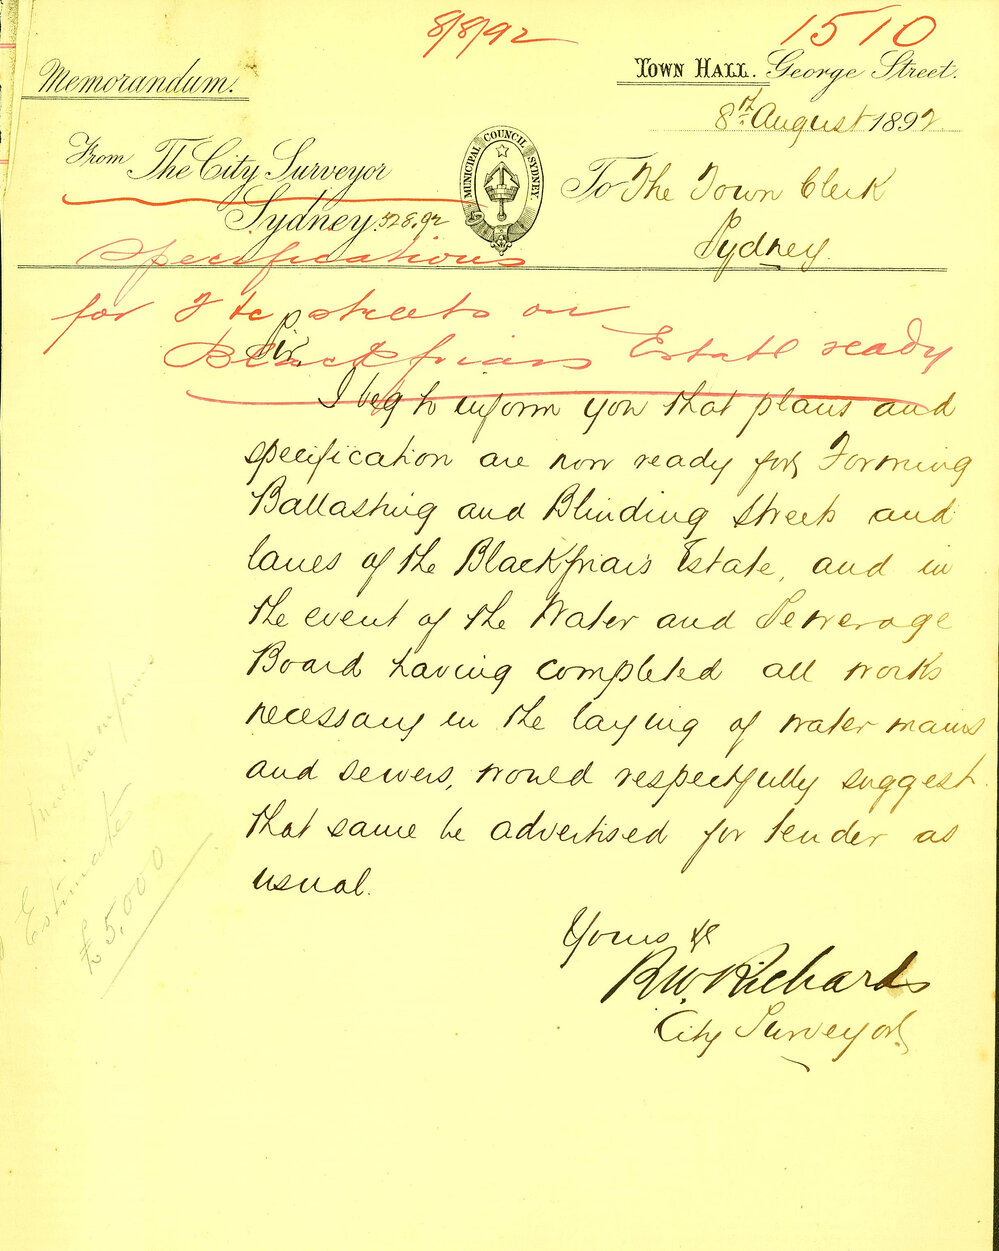 8/8/92
1510
Memorandum.
TOWN HALL. George Street.
8th August 1892
From The City Surveyor
Sydney. 528.92
MUNICIPAL COUNCIL SYDNEY.
To The Town Clerk
Sydney.
Specifications
for F &c streets on
Blackfriars Estate ready
Sir,
I beg to inform you that plans and
specification are now ready for Forming
Ballasting and Blinding Streets and
lanes of the Blackfriars Estate, and in
the event of the Water and Sewerage
Board having completed all works
necessary in the laying of water mains
and sewers, would respectfully suggest
that same be advertised for tender as
usual.
Yours &c
R.W. Richards
City Surveyor.
Estimate
£5,000